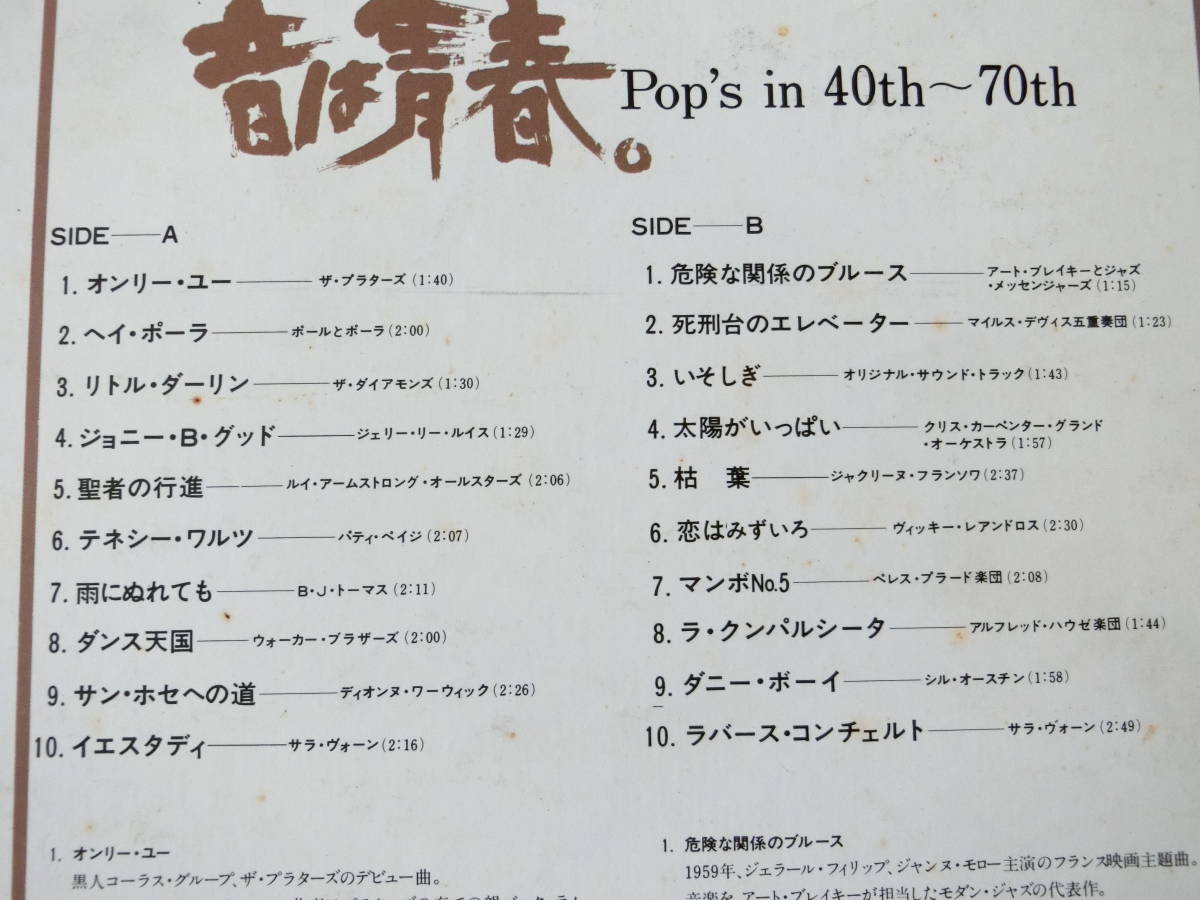 音は青春。
Pop's in 40th〜70th
SIDE——A
1. オンリー・ユー——ザ・プラターズ(1:40)
2. ヘイ・ポーラ——ポールとポーラ(2:00)
3. リトル・ダーリン——ザ・ダイアモンズ(1:30)
4. ジョニー・B・グッド——ジェリー・リー・ルイス(1:29)
5. 聖者の行進——ルイ・アームストロング・オールスターズ(2:06)
6. テネシー・ワルツ——パティ・ペイジ(2:07)
7. 雨にぬれても——B・J・トーマス(2:11)
8. ダンス天国——ウォーカー・ブラザーズ(2:00)
9. サン・ホセへの道——ディオンヌ・ワーウィック(2:26)
10. イエスタディ——サラ・ヴォーン(2:16)
SIDE——B
1. 危険な関係のブルース——アート・ブレイキーとジャズ
・メッセンジャーズ(1:15)
2. 死刑台のエレベーター——マイルス・デヴィス五重奏団(1:23)
3. いそしぎ——オリジナル・サウンド・トラック(1:43)
4. 太陽がいっぱい——クリス・カーペンター・グランド
・オーケストラ(1:57)
5. 枯　葉——ジャクリーヌ・フランソワ(2:37)
6. 恋はみずいろ——ヴィッキー・レアンドロス(2:30)
7. マンボNo.5——ペレス・プラード楽団(2:08)
8. ラ・クンパルシータ——アルフレッド・ハウゼ楽団(1:44)
9. ダニー・ボーイ——シル・オースチン(1:58)
10. ラバース・コンチェルト——サラ・ヴォーン(2:49)
1. オンリー・ユー
黒人コーラス・グループ、ザ・プラターズのデビュー曲。
1. 危険な関係のブルース
1959年、ジェラール・フィリップ、ジャンヌ・モロー主演のフランス映画主題曲。
音楽を アート・ブレイキーが担当したモダン・ジャズの代表作。